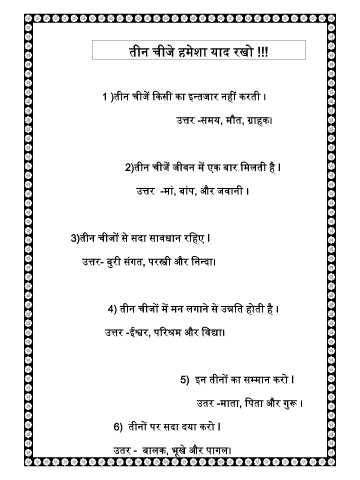 तीन चीजे हमेशा याद रखो !!!
1 )तीन चीजें किसी का इन्तजार नहीं करती ।
उत्तर -समय, मौत, ग्राहक।
2)तीन चीजें जीवन में एक बार मिलती है I
उत्तर -मां, बांप, और जवानी ।
3)तीन चीजों से सदा सावधान रहिए I
उत्तर- बुरी संगत, परस्त्री और निन्दा।
4) तीन चीजों में मन लगाने से उन्नति होती है ।
उत्तर -ईश्वर, परिश्रम और विद्या।
5) इन तीनों का सम्मान करो I
उतर -माता, पिता और गुरू ।
6) तीनों पर सदा दया करो I
उतर - बालक, भूखे और पागल।